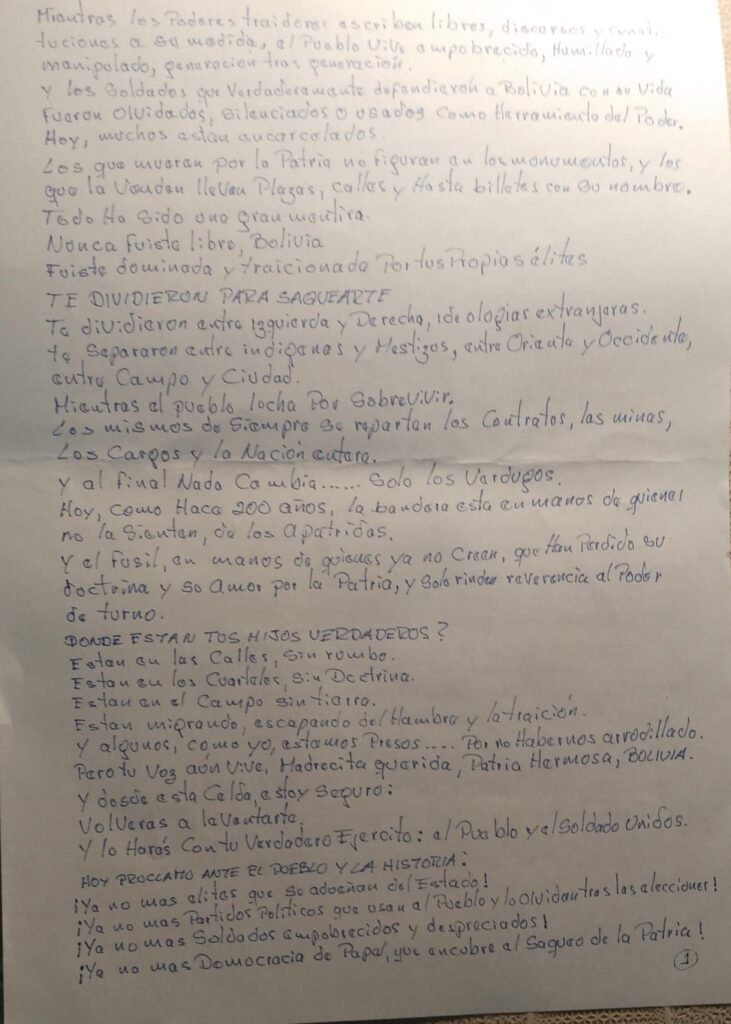 Mientras los Poderes traidores escriben libros, discursos y consti-
tuciones a su medida, el Pueblo Vive empobrecido, Humillado y
manipulado, generación tras generación.
y los Soldados que Verdaderamente defendieron a Bolivia con su Vida
Fueron Olvidados, Silenciados o usados como Herramienta del Poder.
Hoy, muchos estan encarcelados.
Los que mueren por la Patria no figuran en los monumentos, y los
que la Venden lleven Plazas, calles y Hasta billetes con su nombre.
Todo Ha Sido una gran mentira.
Nunca Fuiste libre, Bolivia
Fuiste dominada y traicionada Por tus Propias élites
TE DIVIDIERON PARA SAQUEARTE
Te dividieron entre Izquierda y Derecha, ideologias extranjeras.
te Separaron entre indigenas y Mestizos, entre Oriente y Occidente,
entre Campo y Ciudad.
Mientras el pueblo lucha Por SobreViVir.
Los mismos de Siempre Se reparten los Contratos, las minas,
Los Cargos y la Nación entera.
y al final Nada Cambia...... Solo los Verdugos.
Hoy, como Hace 200 años, la bandera esta en manos de quienes
no la Sienten, de los apatridas.
y el Fusil, en manos de quienes ya no Creen, que Han Perdido su
doctrina y su Amor por la Patria, y Solo rinden reverencia al Poder
de turno.
DONDE ESTAN TUS HIJOS VERDADEROS?
Estan en las Calles, Sin rumbo.
Estan en los Cuarteles, Sin Doctrina.
Estan en el Campo sin tierra.
Estan migrando, escapando del Hambre y la traición.
y algunos, como yo, estamos Presos.... Por no Habernos arrodillado.
Pero tu Voz aún Vive, Madrecita querida, Patria Hermosa, BOLIVIA.
y desde esta Celda, estoy Seguro:
Volveras a levantarte.
Y lo Harás Con tu Verdadero Ejercito: el Pueblo y el Soldado Unidos.
HOY PROCLAMO ANTE EL PUEBLO Y LA HISTORIA:
¡Ya no mas elites que Se adueñan del Estado!
¡Ya no mas Partidos Politicos que usan al Pueblo y lo Olvidan tras las elecciones!
¡Ya no mas Soldados empobrecidos y despreciados!
¡Ya no mas Democracia de Papel, que encubre al Saqueo de la Patria!
1